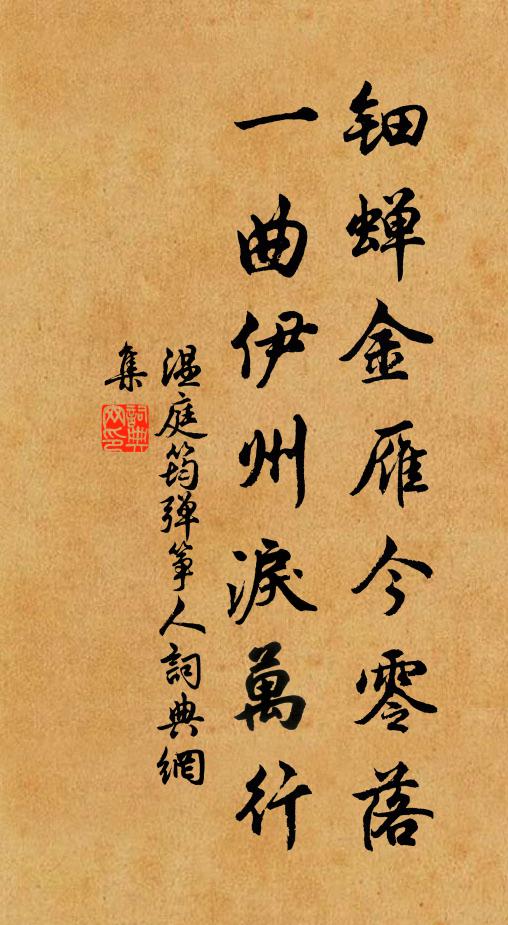 钿蝉金雁今零落
一曲伊州淚萬行
温庭筠彈箏人詞典網
集
詞典
网印